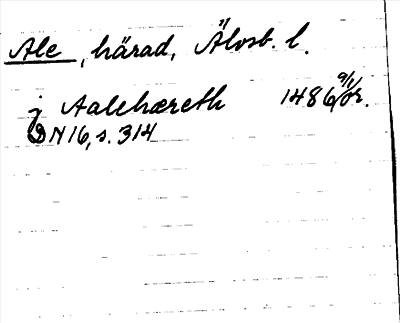 Ale, härad, Älvsb. l.
j Aalehæreth 1486 9/1 or.
DN 16, s. 314